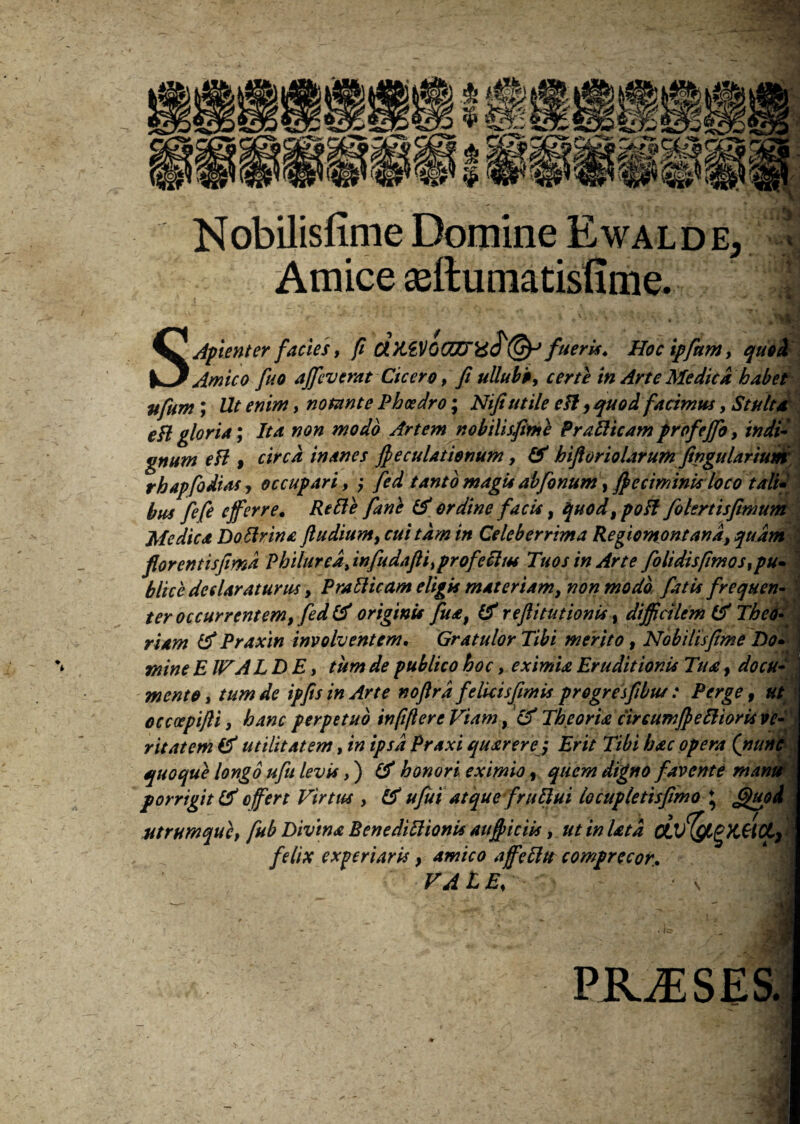 Nobilisſime Domine EWALDE,
Amice æſtumatisſime.
SApienter facies, ſi ἀκενόσπουδ@ fueris. Hoc ipſum, quod
Amico ſuo aſſeverat Cicero, ſi ullubi, certè in Arte Medicâ habet
uſum; Ut enim, notante Phœdro; Niſi utile eſt, quod facimus, Stulta
eſt gloria; Ita non modò Artem nobilisſimè Practicam profeſſo, indi-
gnum eſt, circà inanes ſpeculationum, & hiſtoriolarum ſingularium
rhapſodias, occupari, ; ſed tantò magis abſonum, ſpeciminis loco tali-
bus ſeſe efferre. Rectè ſanè & ordine facis, quod, poſt ſolertisſimum
Medicæ Doctrinæ ſtudium, cui tàm in Celeberrima Regiomontanâ, quàm
florentisſimâ Philureâ, inſudaſti, profectus Tuos in Arte ſolidisſimos, pu-
blicè declaraturus, Practicam eligis materiam, non modò ſatis frequen-
ter occurrentem, ſed & originis ſuæ, & reſtitutionis, difficilem & Theo-
riam & Praxin involventem. Gratulor Tibi meritò, Nobilisſime Do-
mine EWALDE, tùm de publico hoc, eximiæ Eruditionis Tuæ, docu-
mento, tum de ipſis in Arte noſtrâ felicisſimis progresſibus: Perge, ut
occœpiſti, hanc perpetuò inſiſtere Viam, & Theoriæ circumſpectioris ve-
ritatem & utilitatem, in ipsâ Praxi quærere; Erit Tibi hæc opera (nunc
quoquè longô uſu levis,) & honori eximio, quem digno favente manu
porrigit & offert Virtus, & uſui atque fructui locupletisſimo; Quod
utrumquè, ſub Divinæ Benedictionis auſpiciis, ut in lætâ αὐταρκείᾳ,
felix experiaris, amico affectu comprecor.
VALE,
PRÆSES.